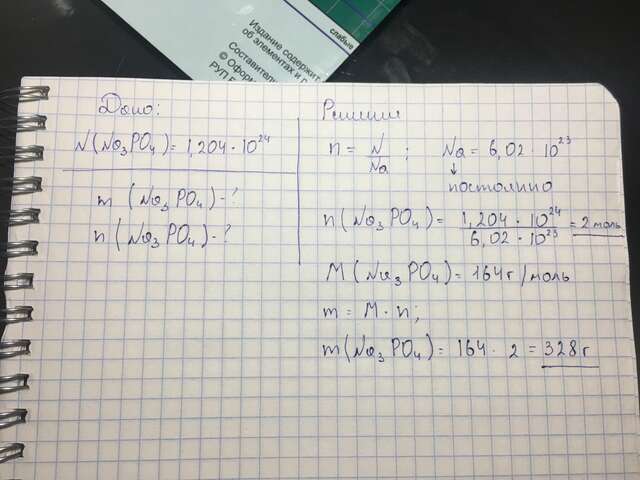 Дано:
N(Na₃PO₄)=1,204·10²⁴
m (Na₃PO₄)-?
n (Na₃PO₄)-?
Решение
n = N/Na ; Na = 6,02 10²³
↓
постоянно
n(Na₃PO₄)= 1,204·10²⁴/6,02·10²³ = 2 моль
M(Na₃PO₄)=164г/моль
m = M·n;
m(Na₃PO₄)= 164·2=328г
Издание содержит
об элементах и
Составители
© Оформ
РУП
слабые